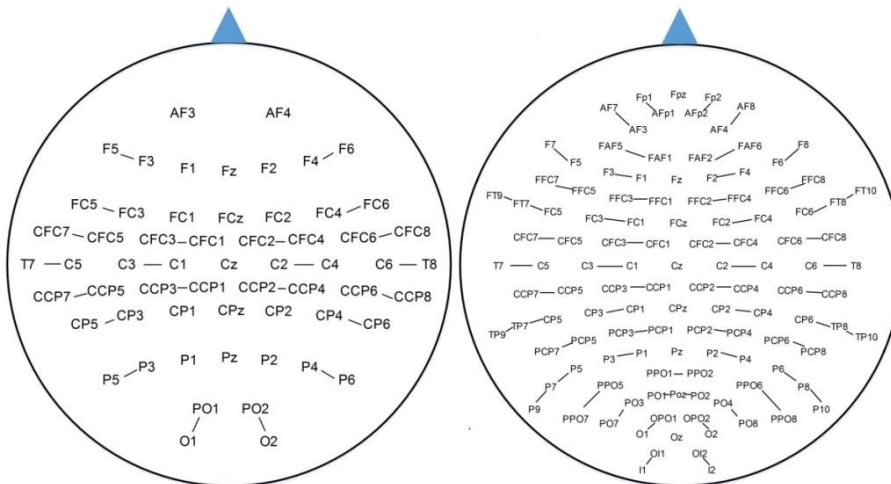 AF3 AF4
F5 F3 F1 Fz F2 F4 F6
FC5 FC3 FC1 FCz FC2 FC4 FC6
CFC7 CFC5 CFC3 CFC1 CFC2 CFC4 CFC6 CFC8
T7 C5 C3 C1 Cz C2 C4 C6 T8
CCP7 CCP5 CCP3 CCP1 CCP2 CCP4 CCP6 CCP8
CP5 CP3 CP1 CPz CP2 CP4 CP6
P5 P3 P1 Pz P2 P4 P6
PO1 PO2
O1 O2
Fp1 Fpz Fp2
AF7 AFp1 AFp2 AF8
AF3 AF4
F7 FAF5 FAF1 FAF2 FAF6 F8
F5 F6
F3 F1 Fz F2 F4
FFC7 FFC5 FFC3 FFC1 FFC2 FFC4 FFC6 FFC8
FT9 FT7 FC5 FC6 FT8 FT10
FC3 FC1 FCz FC2 FC4
CFC7 CFC5 CFC3 CFC1 CFC2 CFC4 CFC6 CFC8
T7 C5 C3 C1 Cz C2 C4 C6 T8
CCP7 CCP5 CCP3 CCP1 CCP2 CCP4 CCP6 CCP8
CP3 CP1 CPz CP2 CP4
TP9 TP7 CP5 CP6 TP8 TP10
PCP7 PCP5 PCP3 PCP1 PCP2 PCP4 PCP6 PCP8
P3 P1 Pz P2 P4
P5 PPO1 PPO2 P6
P9 P7 PPO5 PPO6 P8 P10
PO3 PO1 Poz PO2 PO4
PPO7 PO7 OPO1 OPO2 PO8 PPO8
O1 Oz O2
OI1 OI2
I1 I2